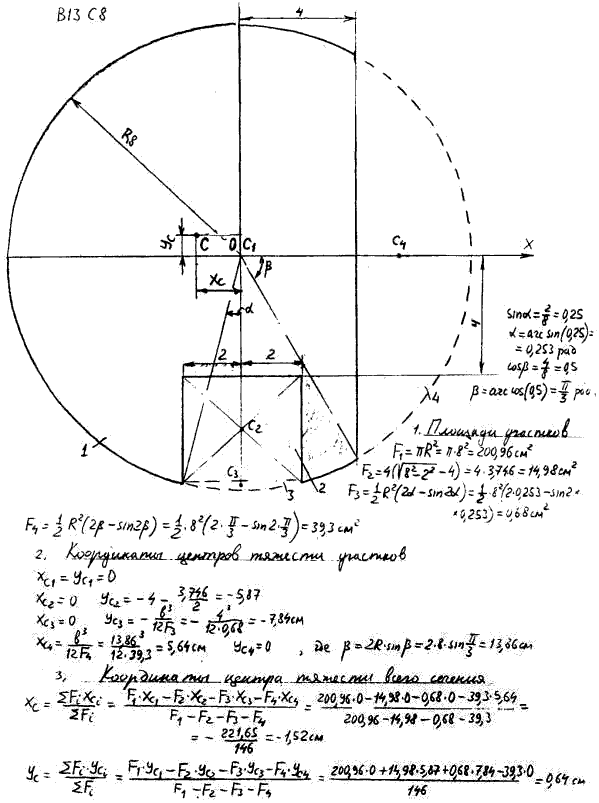 В13 С8
4
R8
yc
C
O
C1
C4
X
β
Xc
α
4
2
2
sinα = 2/8 = 0,25
α = arc sin(0,25) =
= 0,253 рад
cosβ = 4/8 = 0,5
β = arc cos(0,5) = π/3 рад.
4
C2
1
C3
3
2
1. Площади участков
F1 = πR² = π·8² = 200,96 см²
F2 = 4(√8²-2² - 4) = 4·3,746 = 14,98 см²
F3 = 1/2 R²(2α - sin2α) = 1/2·8²(2·0,253 - sin2×
×0,253) = 0,68 см²
F4 = 1/2 R²(2β - sin2β) = 1/2·8²(2·π/3 - sin2·π/3) = 39,3 см²
2. Координаты центров тяжести участков
XC1 = YC1 = 0
XC2 = 0 YC2 = -4 - 3,746/2 = -5,87
XC3 = 0 YC3 = - b³/12F3 = - 4³/12·0,68 = -7,84 см
XC4 = b³/12F4 = 13,86³/12·39,3 = 5,64 см YC4 = 0 , где b = 2R·sinβ = 2·8·sin π/3 = 13,86 см
3, Координаты центра тяжести всего сечения
XC = ΣFi·XCi/ΣFi = F1·XC1 - F2·XC2 - F3·XC3 - F4·XC4/F1 - F2 - F3 - F4 = 200,96·0 - 14,98·0 - 0,68·0 - 39,3·5,64/200,96 - 14,98 - 0,68 - 39,3 =
= - 221,65/146 = -1,52 см
YC = ΣFi·YCi/ΣFi = F1·YC1 - F2·YC2 - F3·YC3 - F4·YC4/F1 - F2 - F3 - F4 = 200,96·0 + 14,98·5,87 + 0,68·7,84 - 39,3·0/146 = 0,64 см